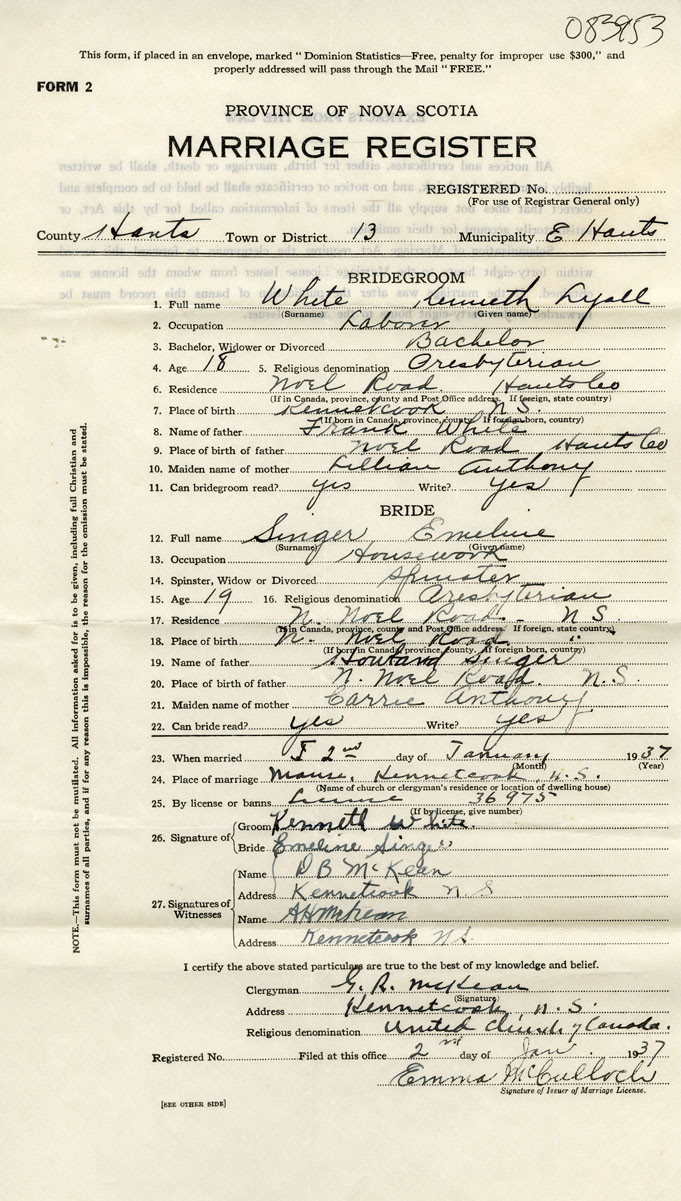 083953
This form, if placed in an envelope, marked "Dominion Statistics—Free, penalty for improper use $300," and
properly addressed will pass through the Mail "FREE."
FORM 2
PROVINCE OF NOVA SCOTIA
MARRIAGE REGISTER
REGISTERED No.
(For use of Registrar General only)
County Hants Town or District 13 Municipality E Hants
BRIDEGROOM
1. Full name White Kenneth Lyall
(Surname) (Given name)
2. Occupation Laborer
3. Bachelor, Widower or Divorced Bachelor
4. Age 18 5. Religious denomination Presbyterian
6. Residence Noel Road Hants Co
(If in Canada, province, county and Post Office address. If foreign, state country)
7. Place of birth Kennetcook N.S.
(If born in Canada, province, county. If foreign born, country)
8. Name of father Frank White
9. Place of birth of father Noel Road Hants Co
10. Maiden name of mother Lillian Anthony
11. Can bridegroom read? yes Write? yes
BRIDE
12. Full name Singer Emeline
(Surname) (Given name)
13. Occupation Housework
14. Spinster, Widow or Divorced Spinster
15. Age 19 16. Religious denomination Presbyterian
17. Residence N. Noel Road - N S
(If in Canada, province, county and Post Office address. If foreign, state country)
18. Place of birth N. Noel Road "
(If born in Canada, province, county. If foreign born, country)
19. Name of father Singer
20. Place of birth of father N. Noel Road. N.S.
21. Maiden name of mother Carrie Anthony
22. Can bride read? yes Write? yes
23. When married 2nd day of January 1937
(Month) (Year)
24. Place of marriage Manse, Kennetcook, N.S.
(Name of church or clergyman's residence or location of dwelling house)
25. By license or banns License 36975
(If by license, give number)
26. Signature of Groom Kenneth White.
Bride Emeline Singer
27. Signatures of Witnesses
Name D B McKean
Address Kennetcook N S
Name McKean
Address Kennetcook N.S.
I certify the above stated particulars are true to the best of my knowledge and belief.
Clergyman G. R. McKean
(Signature)
Address Kennetcook, N.S.
Religious denomination United Church of Canada.
Registered No. Filed at this office 2nd day of Jan. 1937
Emma McCulloch
Signature of Issuer of Marriage License.
[SEE OTHER SIDE]
NOTE.—This form must not be mutilated. All information asked for is to be given, including full Christian and
surnames of all parties, and if for any reason this is impossible, the reason for the omission must be stated.